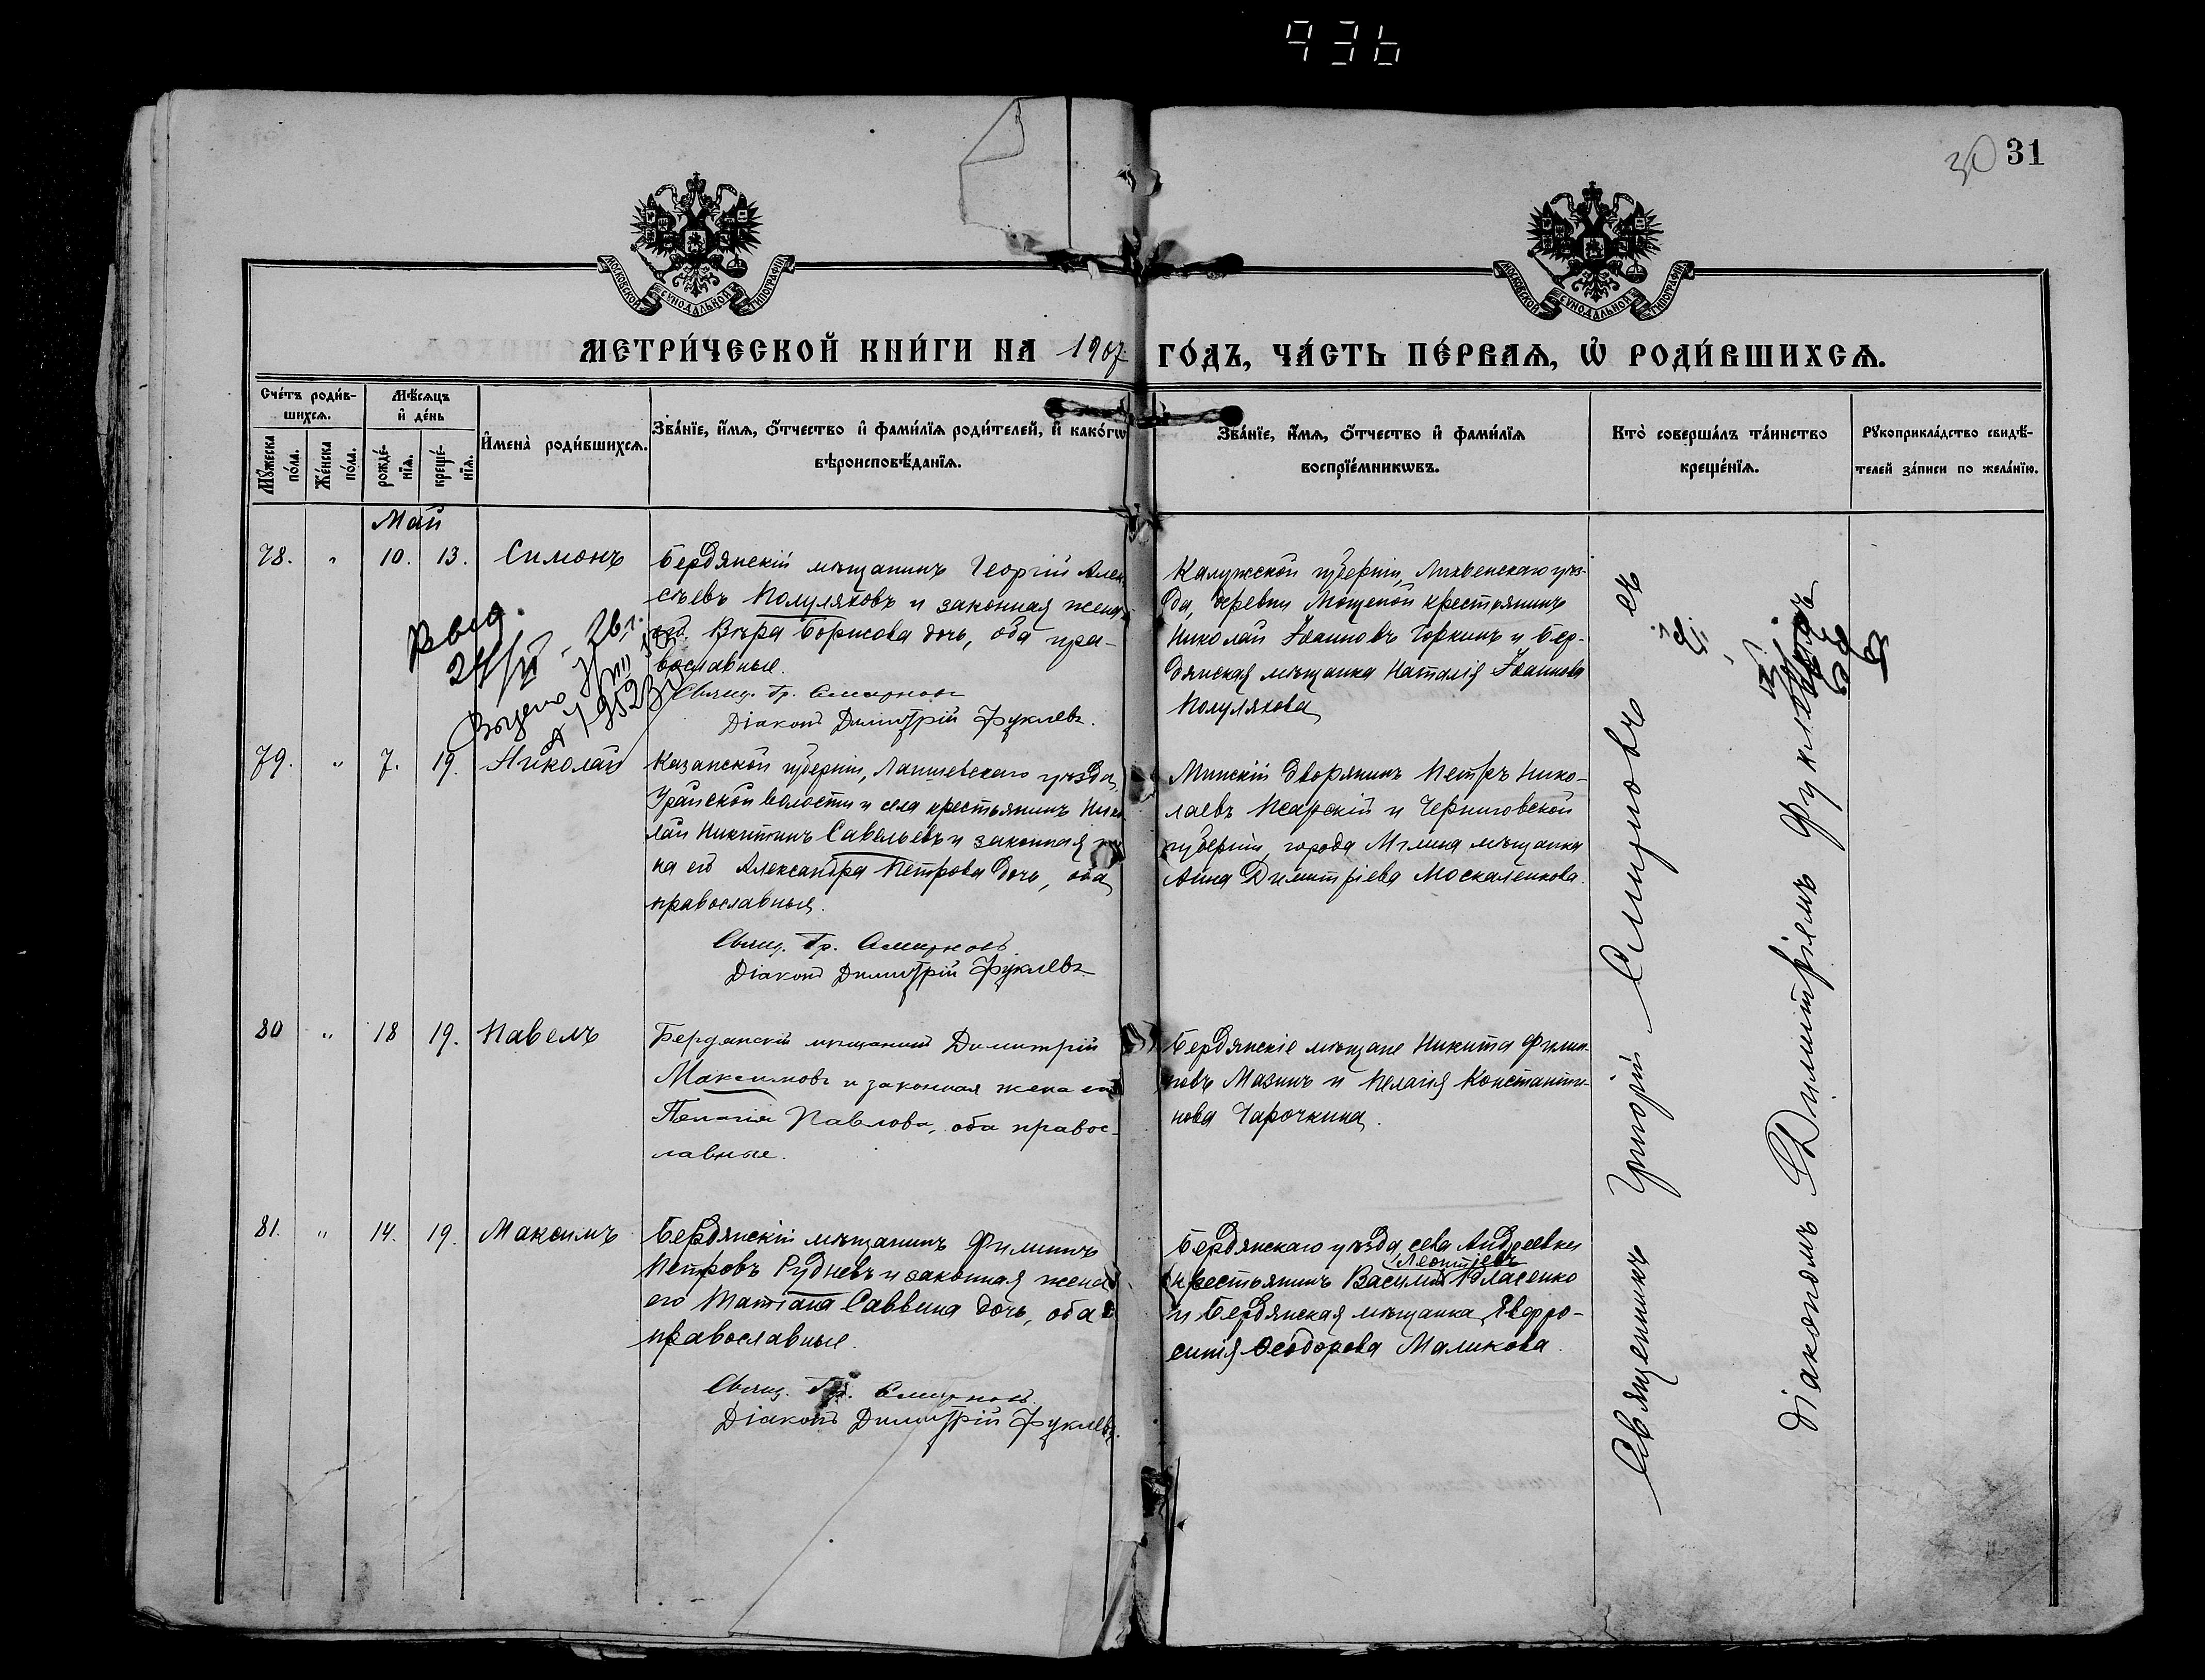 936
30 31
МОСКОВСКОЙ СѴНОДАЛЬНОЙ ТИПОГРАФІИ
МОСКОВСКОЙ СѴНОДАЛЬНОЙ ТИПОГРАФІИ
МЕТРИ́ЧЕСКОЙ КНИ́ГИ НА 1907 ГО́ДЪ, ЧА́СТЬ ПЕ́РВАѦ, Ѽ РОДИ́ВШИХСѦ.
Сче́тъ роди́в-
шихсѧ.
Мꙋ́жеска по́ла.
Же́нска по́ла.
Мѣ́сѧцъ
и҆ де́нь
рожде́-
нїѧ.
креще́-
нїѧ.
И҆мена̀ роди́вшихсѧ.
Зва́нїе, и҆́мѧ, ѻ҆́тчество и҆ фами́лїѧ роди́телей, и҆ како́гѡ
вѣроисповѣ́данїѧ.
Зва́нїе, и҆́мѧ, ѻ҆́тчество и҆ фами́лїѧ
воспрїе́мникѡвъ.
Кто̀ соверша́лъ та́инство
креще́нїѧ.
Рꙋкоприкла́дство свидѣ́-
телей за́писи по жела́нїю.
Май
78. " 10. 13. Симонъ
Бердянскій мѣщанинъ Георгій Алек-
сѣевъ Полуляховъ и законная жена
его Вѣра Борисова дочь, оба пра-
вославные.
Свящ. Гр. Смирновъ
Діаконъ Димитрій Фуклевъ.
Калужской губерніи, Лихвенскаго уѣз-
да, деревни Мощеной крестьянинъ
Николай Іоанновъ Горкинъ и Бер-
дянская мѣщанка Наталія Іоаннова
Полуляхова
79. " 7. 19. Николай
Казанской губерніи, Лаишевскаго уѣзда,
волости и села крестьянинъ Нико-
лай Никитинъ Савельевъ и законная же-
на его Александра Петрова дочь, оба
православные.
Свящ. Гр. Смирновъ
Діаконъ Димитрій Фуклевъ
Минскій дворянинъ Петръ Нико-
лаевъ Псарскій и Черниговской
губерніи, города Мглина мѣщанка
Анна Димитріева Москаленкова.
80 " 18 19. Павелъ
Бердянскій мѣщанинъ Димитрій
Максимовъ и законная жена его
Пелагія Павлова, оба правос-
лавные.
Бердянскіе мѣщане Никита Филип-
повъ Мазинъ и Пелагія Константи-
нова Чарочкина.
81. " 14. 19. Максимъ
Бердянскій мѣщанинъ Филиппъ
Петровъ Рудневъ и законная жена
его Татіана Саввина дочь, оба
православные.
Свящ. Гр. Смирновъ.
Діаконъ Димитрій Фуклевъ.
Бердянскаго уѣзда, села Андреевки
Леонтіевъ
крестьянинъ Василій Власенко
и Бердянская мѣщанка Евфро-
синія Ѳеодорова Маликова.
Священникъ Григорій Смирновъ съ
Діакономъ Димитріемъ Фуклевымъ